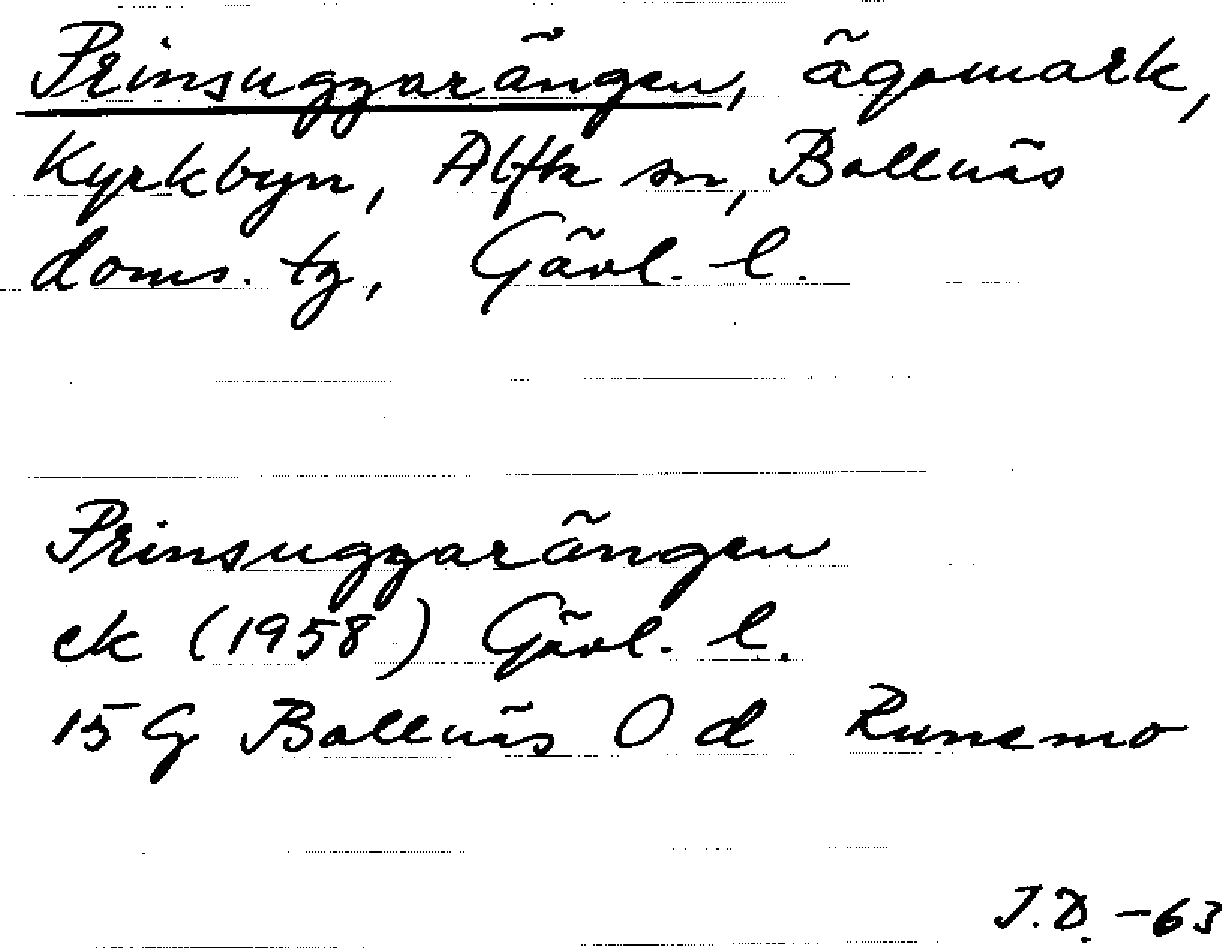 Prinsuggarängen, ägomark,
Kyrkbyn, Alfta sn, Bollnäs
doms. tg, Gävl. l.
Prinsuggarängen
ek (1958) Gävl. l.
15 G Bollnäs 0 d Runemo
J.D. -63